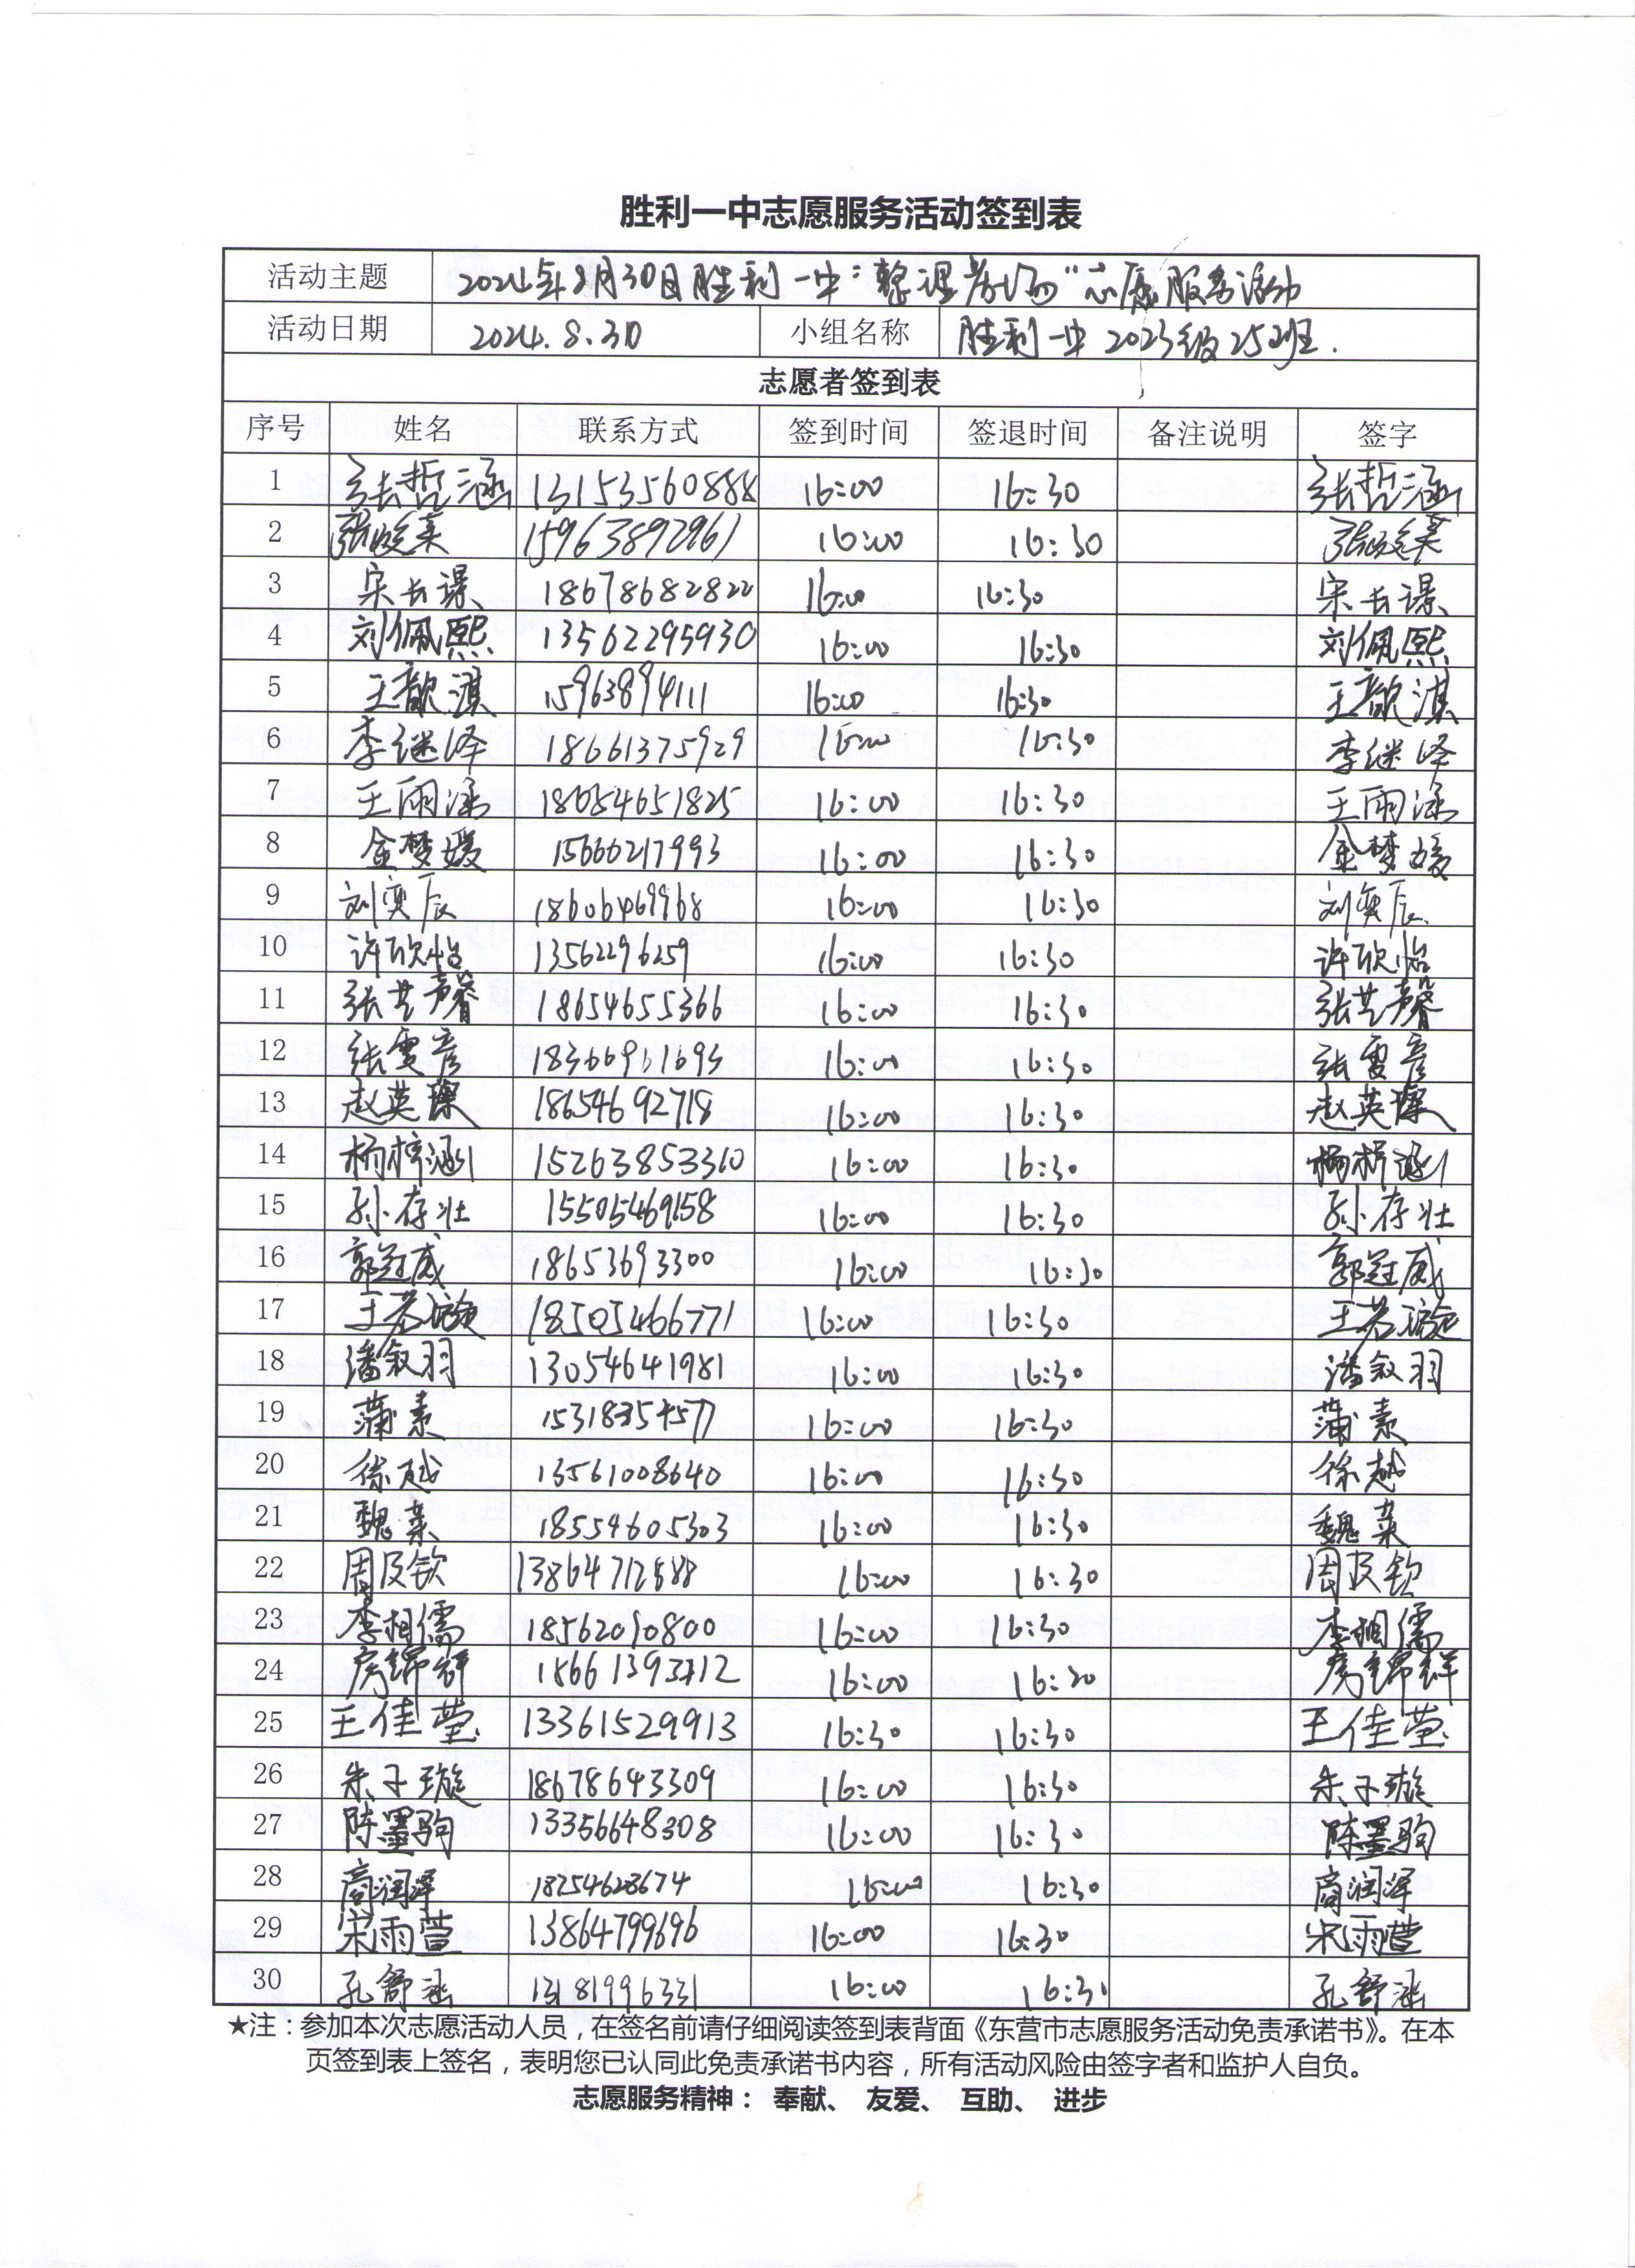 胜利一中志愿服务活动签到表
活动主题 2024年8月30日胜利一中"整理考场"志愿服务活动
活动日期 2024.8.30 小组名称 胜利一中2023级25班.
志愿者签到表
序号 姓名 联系方式 签到时间 签退时间 备注说明 签字
1 张哲涵 13153560888 16:00 16:30 张哲涵
2 15963892961 16:00 16:30
3 宋长谋 18678682822 16:00 16:30 宋长谋
4 刘佩熙 13562295930 16:00 16:30 刘佩熙
5 王歆淇 15963894111 16:00 16:30 王歆淇
6 李继泽 18661375929 16:00 16:30 李继泽
7 王雨涵 18654651825 16:00 16:30 王雨涵
8 金梦媛 15666217993 16:00 16:30 金梦媛
9 刘奕辰 18606469968 16:00 16:30 刘奕辰
10 许欣怡 13562296259 16:00 16:30 许欣怡
11 张艺馨 18654655366 16:00 16:30 张艺馨
12 张雯彦 18366961693 16:00 16:30 张雯彦
13 赵英璨 18654692718 16:00 16:30 赵英璨
14 杨梓涵 15263853310 16:00 16:30 杨梓涵
15 孙存壮 15505469158 16:00 16:30 孙存壮
16 郭冠威 18653693300 16:00 16:30 郭冠威
17 王若璇 18505466771 16:00 16:30 王若璇
18 潘叙羽 13054641981 16:00 16:30 潘叙羽
19 蒲素 15318354577 16:00 16:30 蒲素
20 徐越 13561008640 16:00 16:30 徐越
21 魏菜 18554605303 16:00 16:30 魏菜
22 周及钦 13864712588 16:00 16:30 周及钦
23 李相儒 18562090800 16:00 16:30 李相儒
24 房锦群 16:00 16:20 房锦群
25 王佳莹 13361529913 16:30 16:30 王佳莹
26 朱子璇 18678643309 16:00 16:30 朱子璇
27 陈墨驹 13356648308 16:00 16:30 陈墨驹
28 商润泽 18254628674 16:00 16:30 商润泽
29 宋雨萱 13864799696 16:00 16:30 宋雨萱
30 孔舒涵 13181996331 16:00 16:30 孔舒涵
★注：参加本次志愿活动人员，在签名前请仔细阅读签到表背面《东营市志愿服务活动免责承诺书》。在本
页签到表上签名，表明您已认同此免责承诺书内容，所有活动风险由签字者和监护人自负。
志愿服务精神： 奉献、 友爱、 互助、 进步